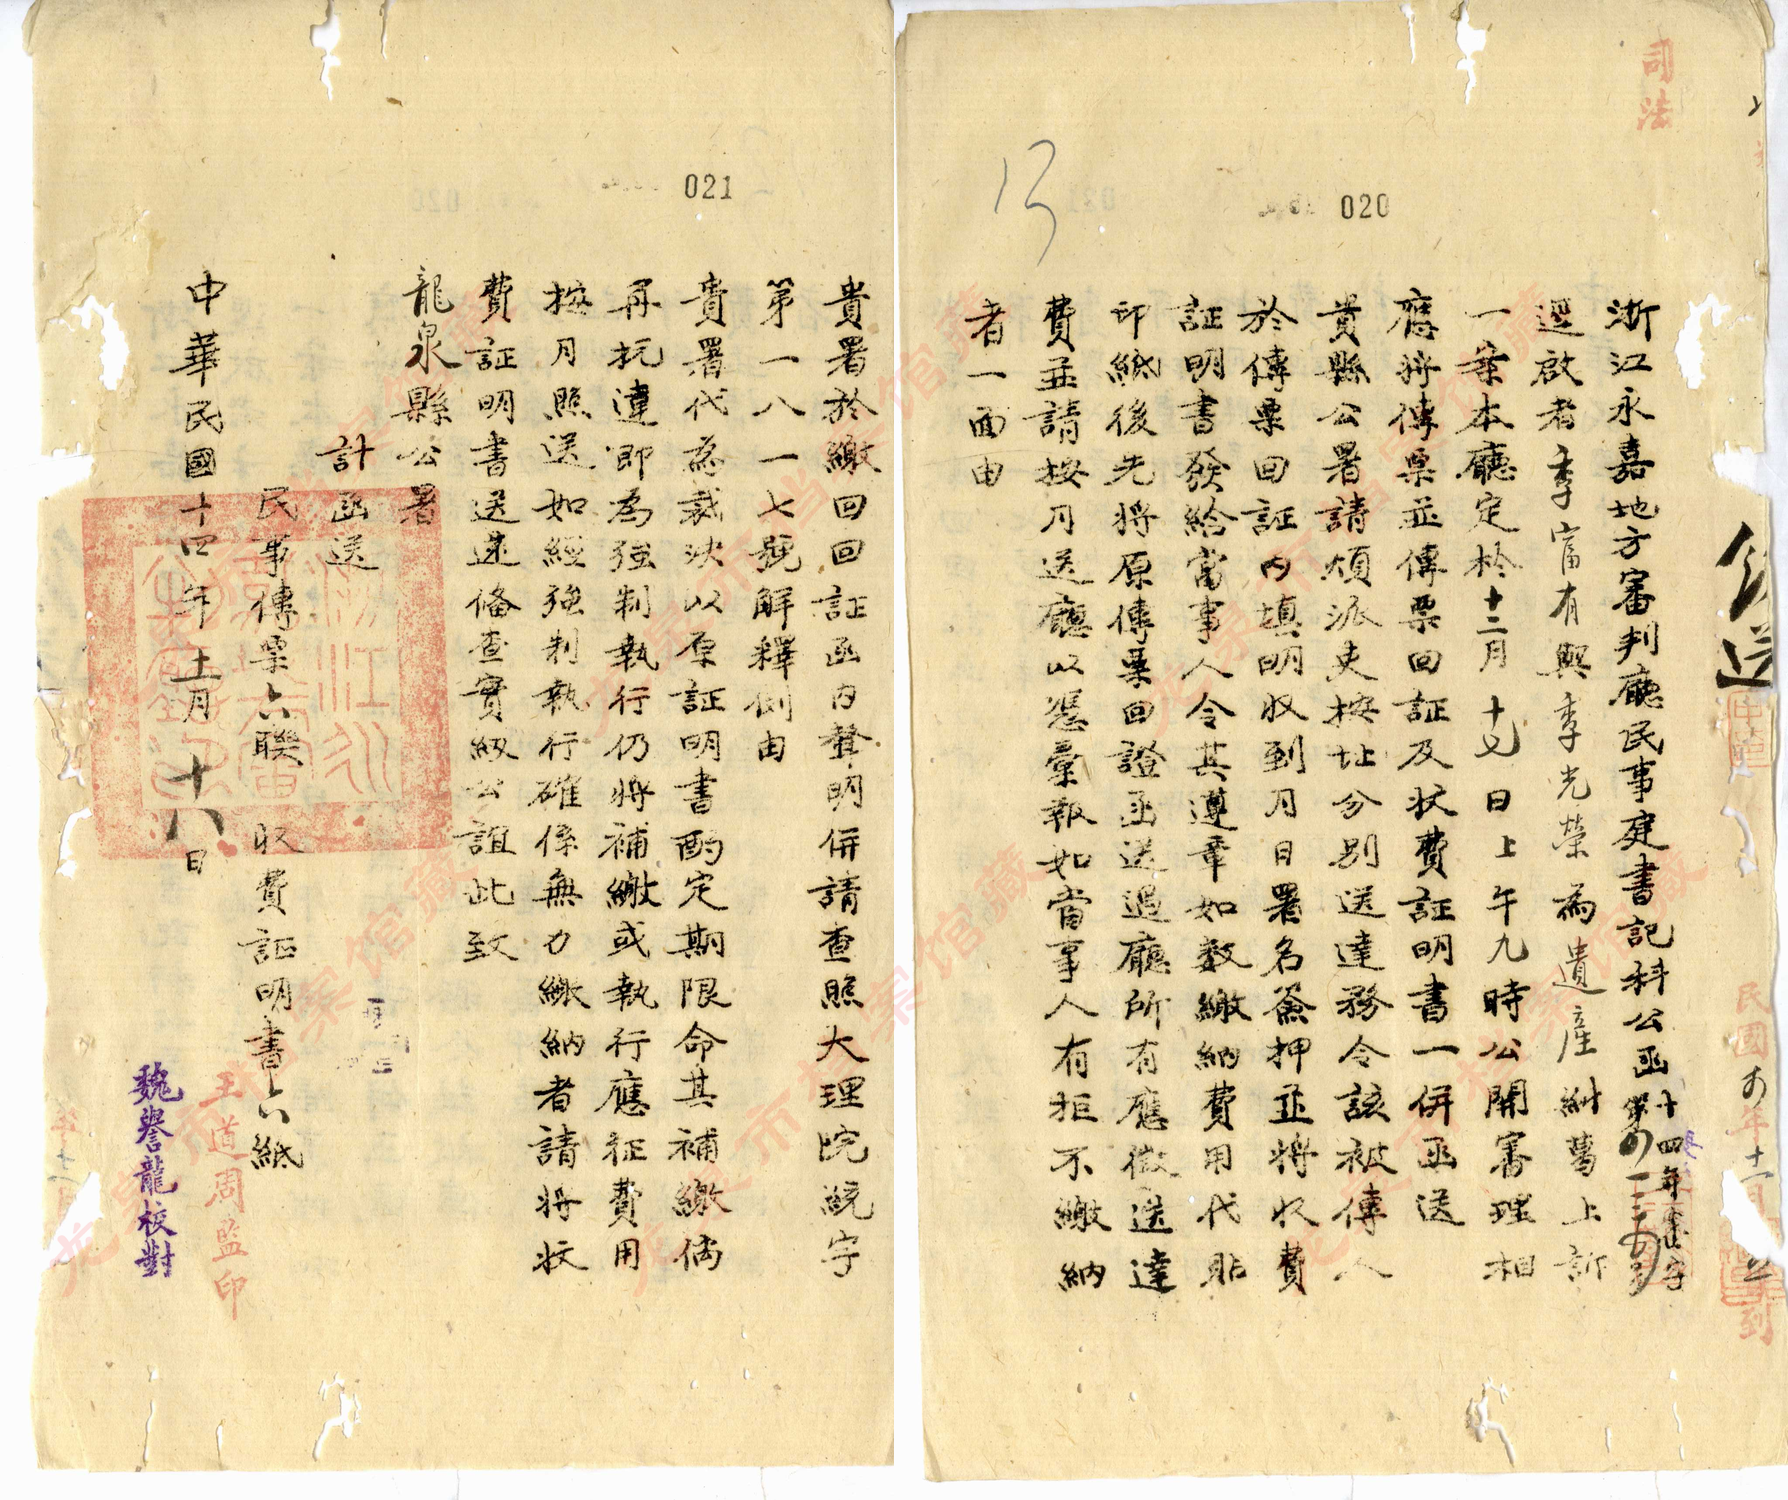 司法
020
浙江永嘉地方審判廳民事庭書記科公函十四年
逕啟者季富有與季光榮為遺產糾葛上訴
一案本廳定於十二月十九日上午九時公開審理相
應將傳票並傳票回証及狀費証明書一併函送
貴縣公署請煩派吏按址分別送達務令該被傳人
於傳票回証內填明收到月日署名簽押並將收費
証明書發給當事人令其遵章如數繳納費用代貼
印紙後先將原傳票回證函送過廳所有應徵送達
費並請按月送廳以憑彙報如當事人有拒不繳納
者一面由
021
貴署於繳回回証函內聲明併請查照大理院統字
第一八一七號解釋例由
貴署代為裁決以原証明書酌定期限命其補繳倘
再抗違即為強制執行仍將補繳或執行應征費用
按月照送如經強制執行確係無力繳納者請將狀
費証明書送還備查實級公誼此致
龍泉縣公署
計函送
民事傳票六聯 收費証明書六紙
中華民國十四年十一月十八日
王道周監印
魏譽龍校對